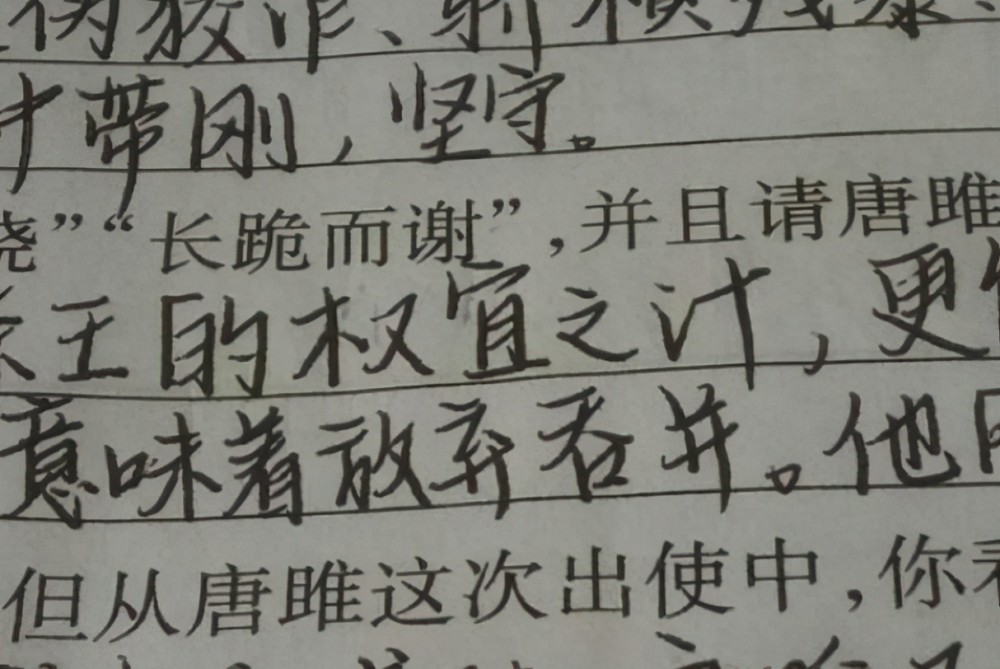 伪狡诈、骄横残暴
中带刚，坚守。
挠”“长跪而谢”，并且请唐雎
秦王的权宜之计，更
意味着放弃吞并。他
但从唐雎这次出使中，你看